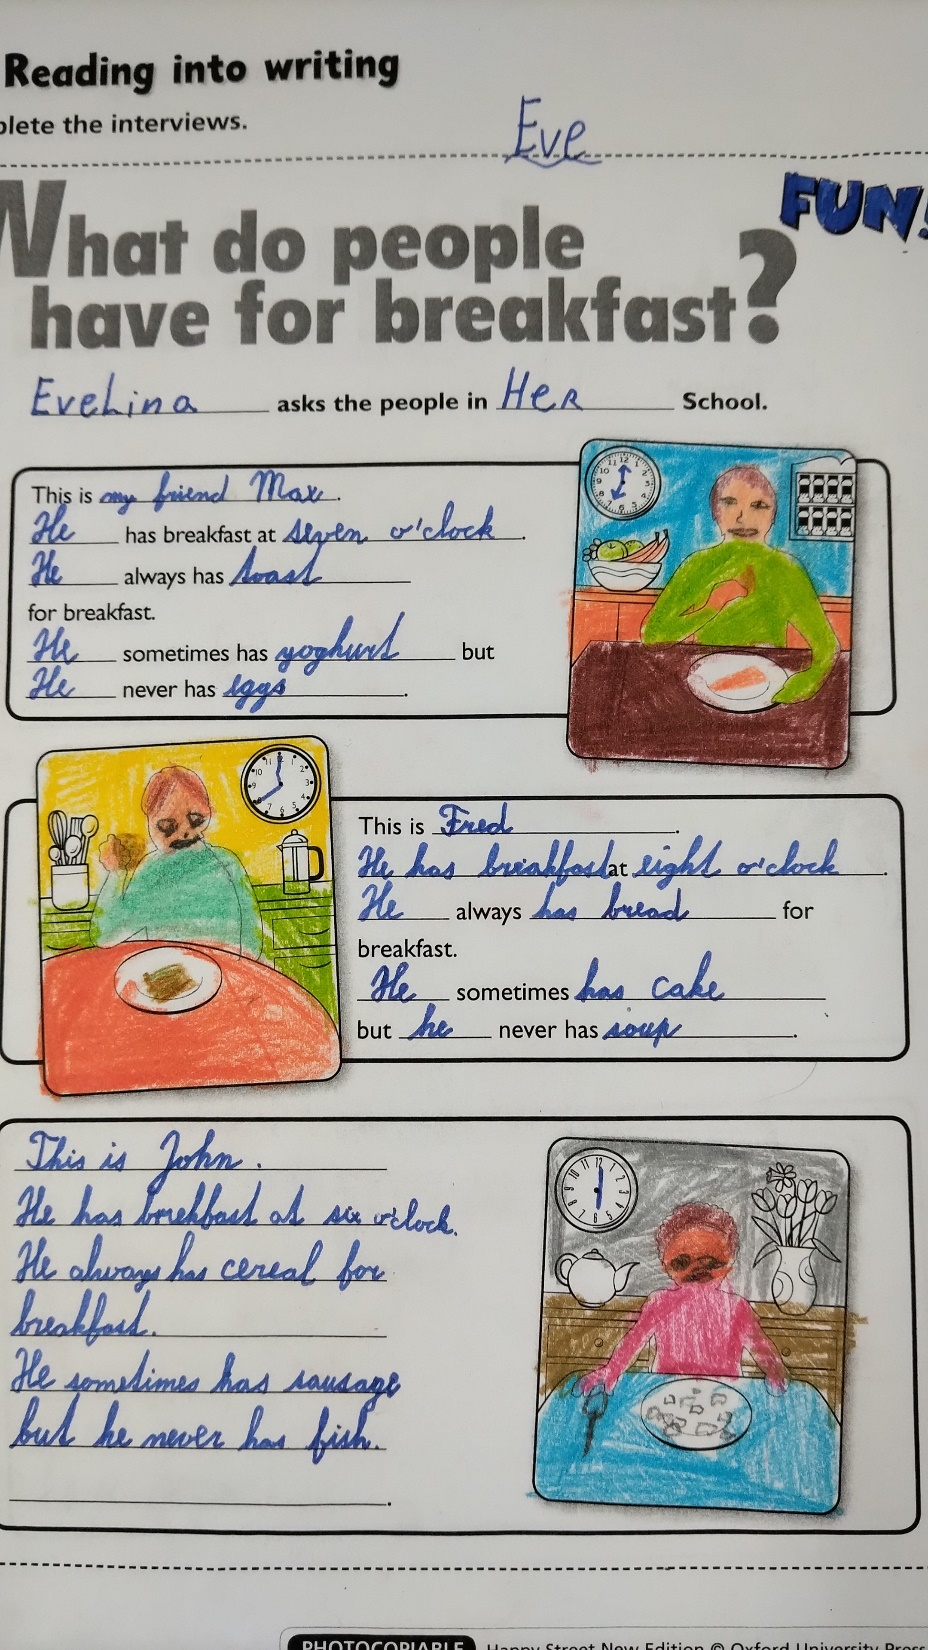 Reading into writing
plete the interviews.
Eve
FUN!
What do people
have for breakfast?
Evelina asks the people in Her School.
This is my friend Max.
He has breakfast at seven o'clock.
He always has toast
for breakfast.
He sometimes has yoghurt but
He never has eggs.
This is Fred.
He has breakfast at eight o'clock.
He always has bread for
breakfast.
He sometimes has cake
but he never has soup.
This is John.
He has brekfast at six o'clock.
He always has cereal for
breakfast.
He sometimes has sausage
but he never has fish.
.
PHOTOCOPIABLE Happy Street New Edition © Oxford University Press